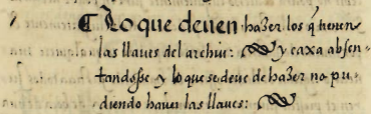 ¶ Lo que deuen hazer los q̃ tienen
las llaues del archiu: y caxa absen-
tandosse y lo que se deue de hazer no pu-
diendo hauer las llaues: